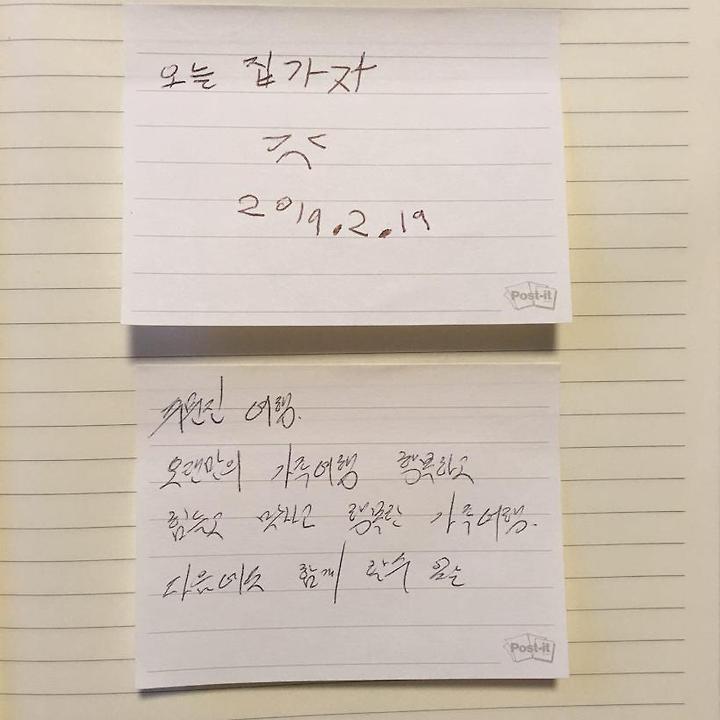 오늘 집가자
2019.2.19
Post-it
여행.
오랜만의 가족여행 행복하고
힘들고 가족여행.
다음에도 함께 할수 있는
Post-it